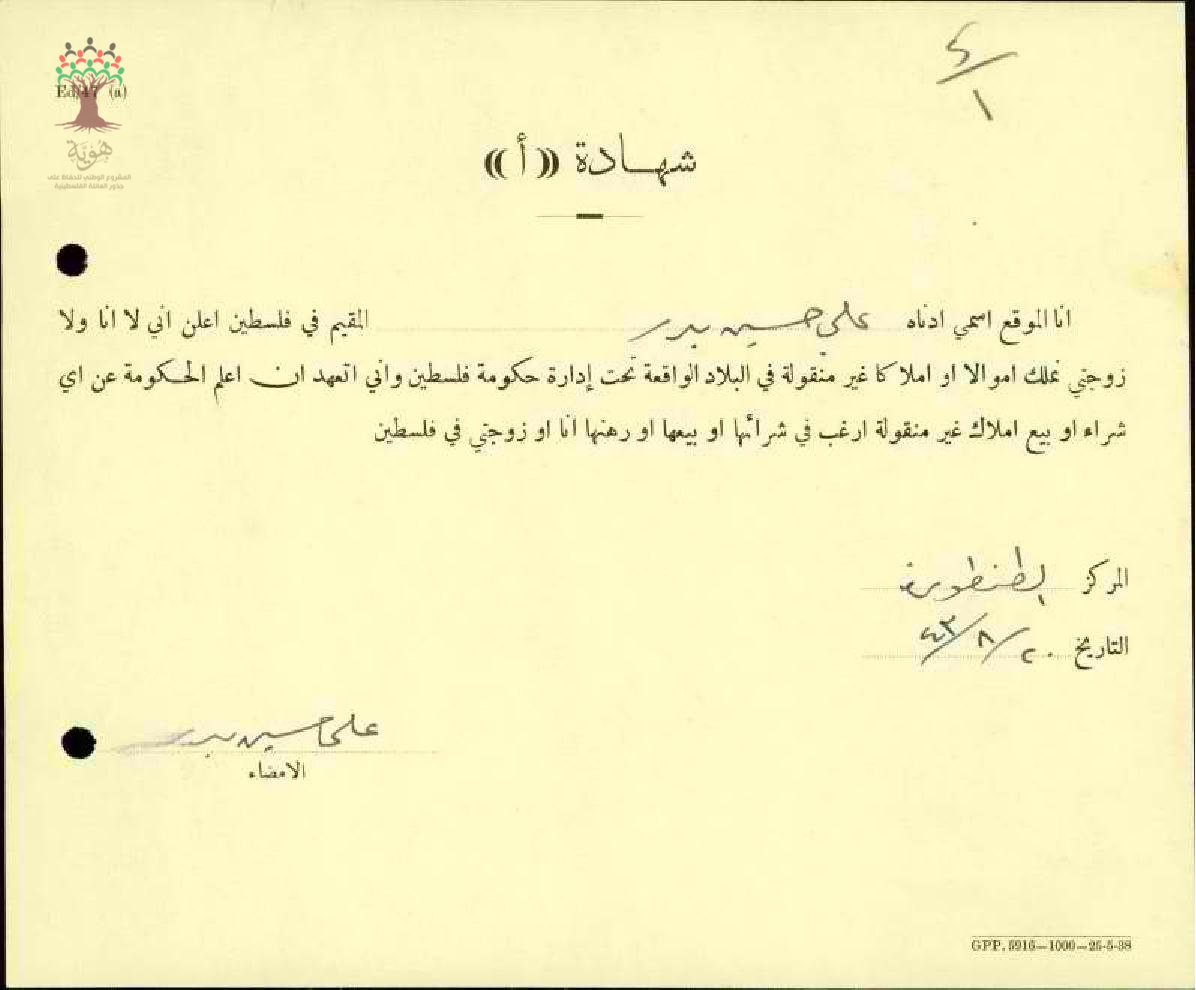 Ed/47 (a)
هوية
المشروع الوطني للحفاظ على
جذور العائلة الفلسطينية
٤/١
شهادة ((أ))
انا الموقع اسمي ادناه علي حسين بدر المقيم في فلسطين اعلن اني لا انا ولا
زوجتي نملك اموالا او املاكا غير منقولة في البلاد الواقعة تحت إدارة حكومة فلسطين واني اتعهد ان اعلم الحكومة عن اي
شراء او بيع املاك غير منقولة ارغب في شرائها او بيعها او رهنها انا او زوجتي في فلسطين
المركز الطنطورة
التاريخ ٢٠/٨/٤٣
علي حسين بدر
الامضاء
GPP. 5916—1000—25-5-38